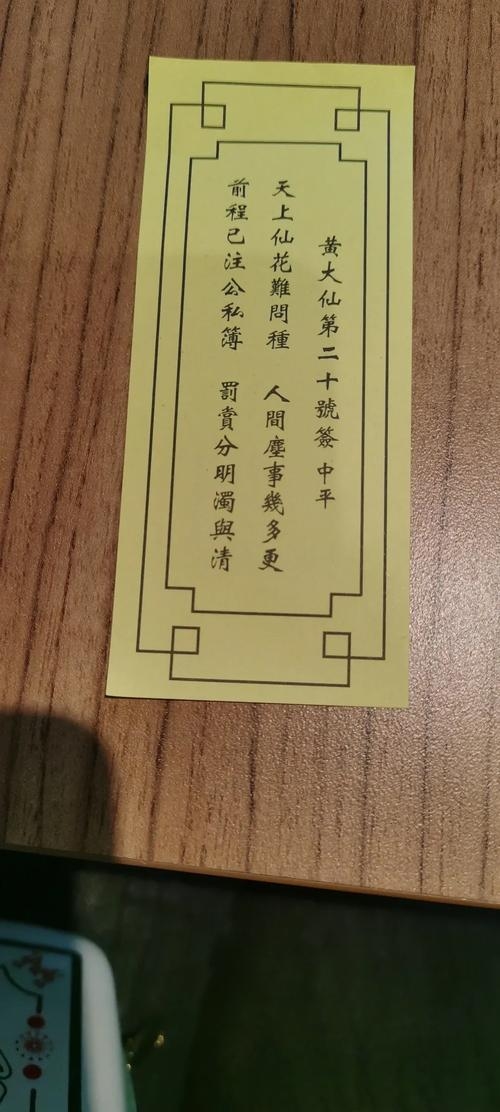 黃大仙第二十號簽 中平
天上仙花難問種 人間塵事幾多更
前程已注公私簿 罰賞分明濁與清